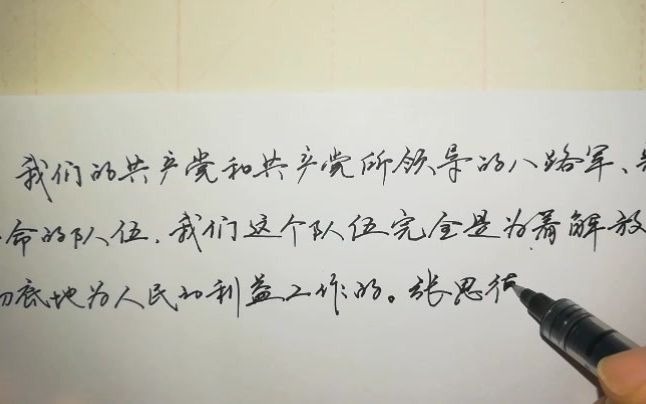 我们的共产党和共产党所领导的八路军、
命的队伍，我们这个队伍完全是为着解放
底地为人民的利益工作的。张思